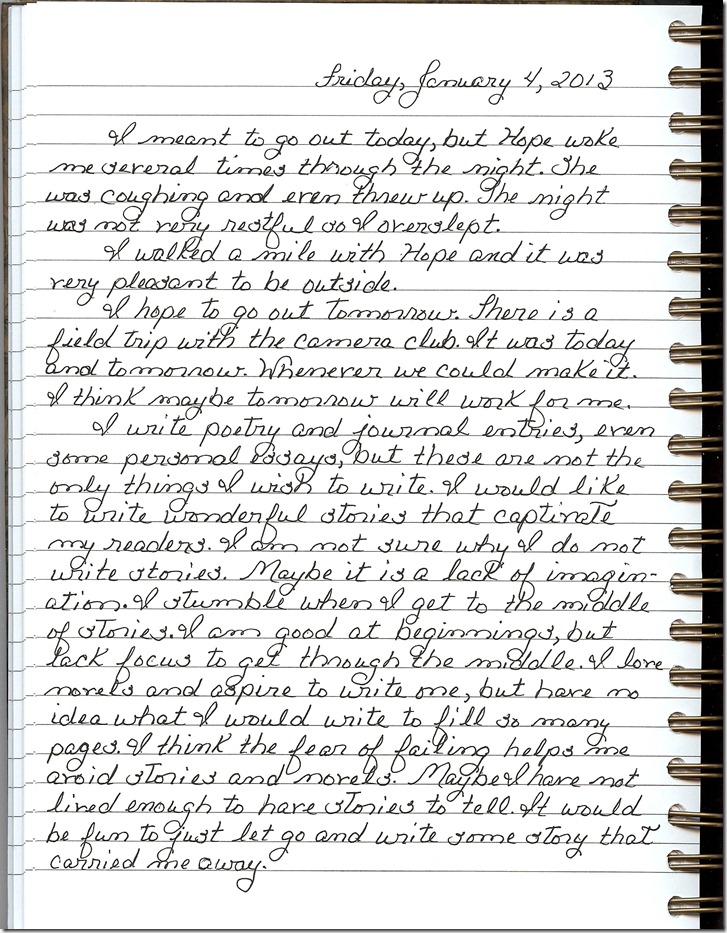 Friday, January 4, 2013
I meant to go out today, but Hope woke
me several times through the night. She
was coughing and even threw up. The night
was not very restful so I overslept.
I walked a mile with Hope and it was
very pleasant to be outside.
I hope to go out tomorrow. There is a
field trip with the camera club. It was today
and tomorrow. Whenever we could make it.
I think maybe tomorrow will work for me.
I write poetry and journal entries, even
some personal essays, but these are not the
only things I wish to write. I would like
to write wonderful stories that captivate
my readers. I am not sure why I do not
write stories. Maybe it is a lack of imagin-
ation. I stumble when I get to the middle
of stories. I am good at beginnings, but
lack focus to get through the middle. I love
novels and aspire to write one, but have no
idea what I would write to fill so many
pages. I think the fear of failing helps me
avoid stories and novels. Maybe I have not
lived enough to have stories to tell. It would
be fun to just let go and write some story that
carried me away.